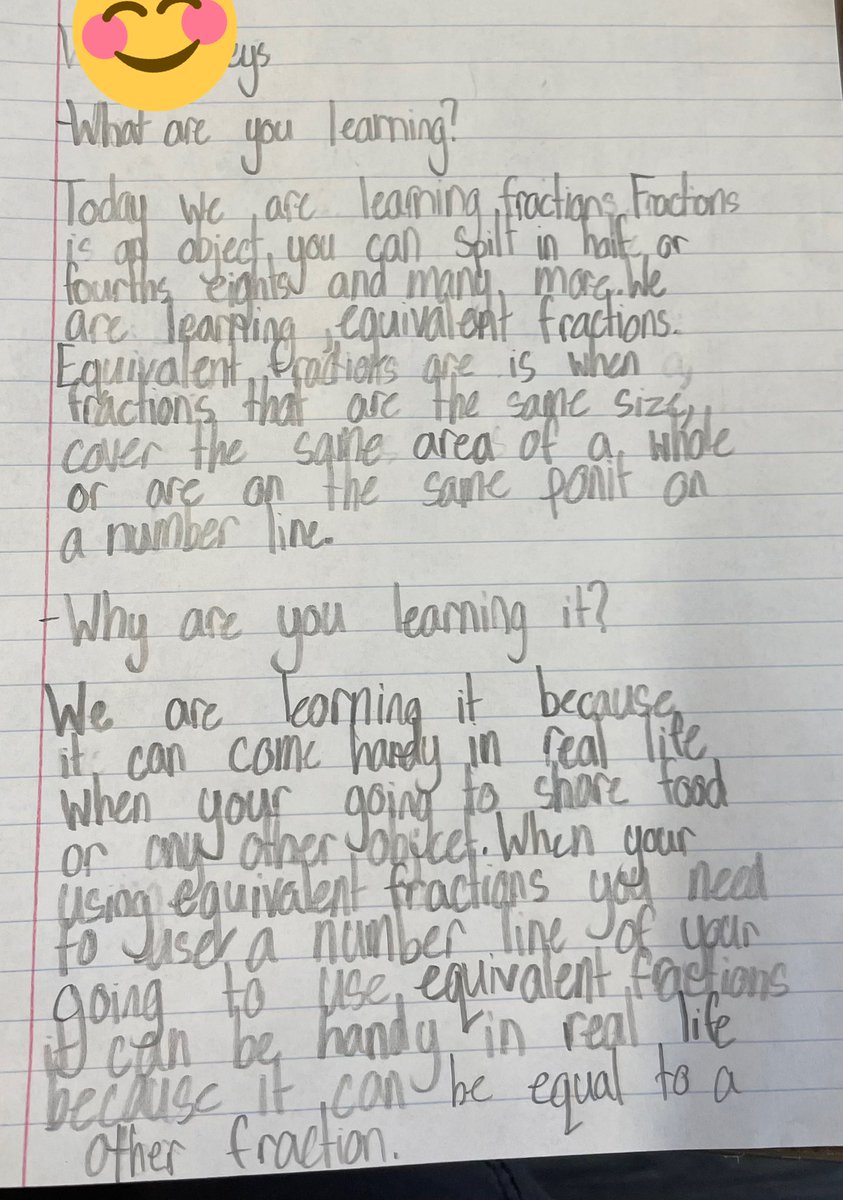 eys
-What are you learning?
Today we are learning fractions. Fractions
is an object you can spilt in half or
fourths eights and many more. We
are learning equivalent fractions.
Equivalent fractions are is when
fractions that are the same size,
cover the same area of a whole
or are on the same ponit on
a number line.
-Why are you learning it?
We are learning it because
it can come handy in real life
when your going to share food
or any other objket. When your
using equivalent fractions you need
to use a number line of your
going to use equivalent factions
it can be handy in real life
because it can be equal to a
other fraction.